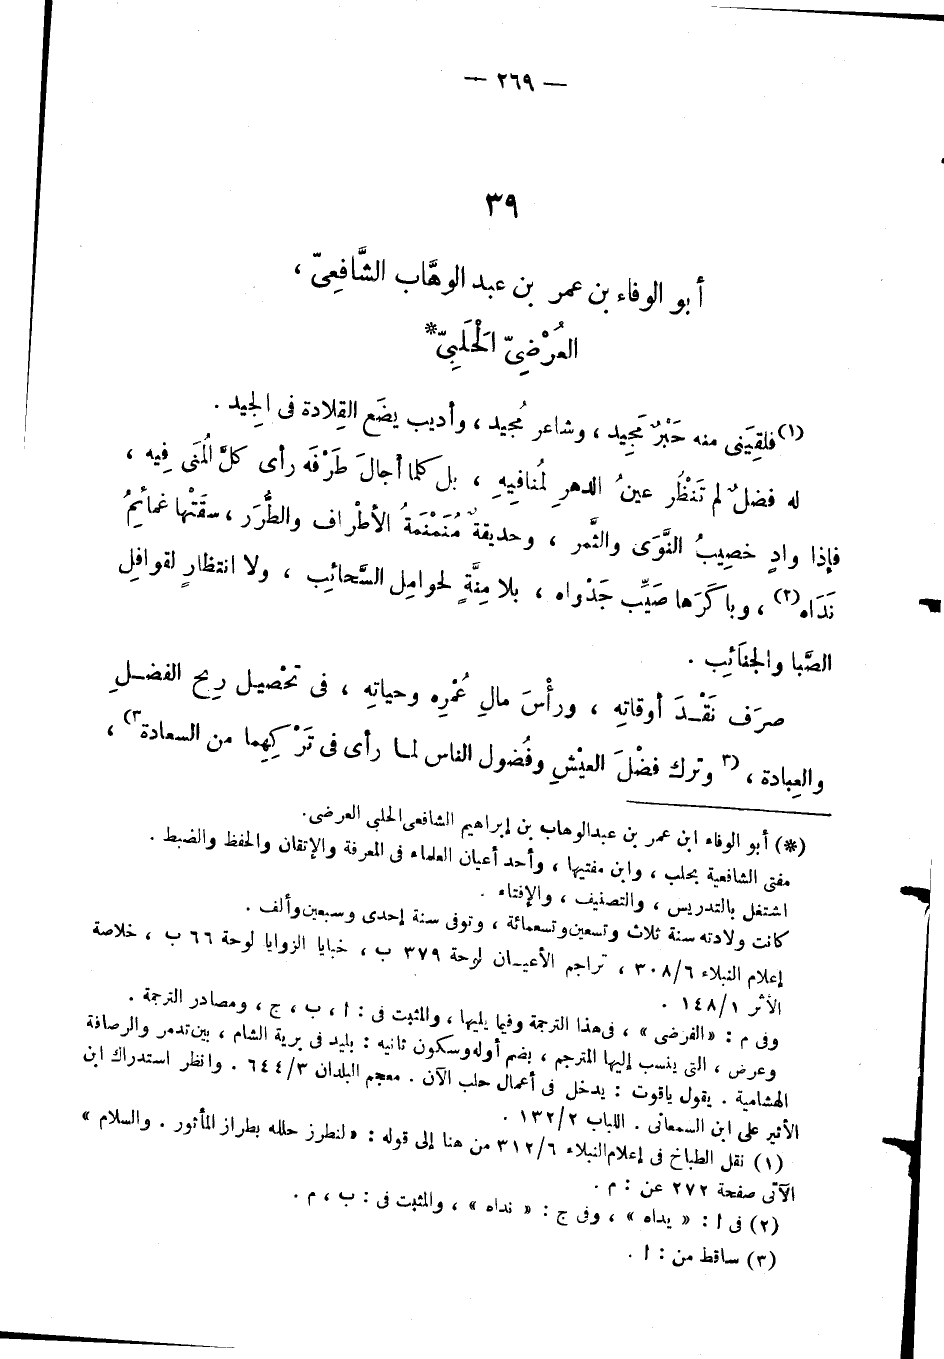 — ٢٦٩ —
٣٩
أبو الوفاء بن عمر بن عبد الوهَّاب الشَّافعِىّ ،
العُرْضِىّ الْحَلَبِىّ*
(١)فلقِيَنى منه حَبْرٌ مَجِيد ، وشاعر مُجيد ، وأديب يضَع القِلادة فى الجِيد .
له فضلٌ لم تَنظُر عينُ الدهرِ لمُنافِيهِ ، بل كلما أجالَ طَرْفَه رأى كلَّ الْمُنَى فِيه ،
فإذا وادٍ خصِيبُ النَّوَى والثَّمر ، وحديقةٌ مُنَمْنَمةُ الأطْراف والطُّرَر ، سقَتْها غمائمُ
نَدَاه(٢) ، وباكَرَها صَيِّب جَدْواه ، بلا مِنَّةٍ لحوامِل السَّحائِب ، ولا انتظارٍ لقوافِل
الصَّبا والجنَائِب .
صرَف نَقْـدَ أوقاتِه ، ورأْسَ مالِ عُمْرِه وحياتِه ، فى تحْصيل رِبح الفضـلِ
والعِبادة ، (٣ وترك فضْلَ العيْشِ وفُضول الناس لمـا رأى فى تَرْكِهِما من السعادة٣) ،
(*) أبو الوفاء ابن عمر بن عبدالوهاب بن إبراهيم الشافعى الحلبى العرضى.
مفتى الشافعية بحلب ، وابن مفتيها ، وأحد أعيان العلماء فى المعرفة والإتقان والحفظ والضبط .
اشتغل بالتدريس ، والتصنيف ، والإفتاء .
كانت ولادته سنة ثلاث وتسعين وتسعمائة ، وتوفى سنة إحدى وسبعين وألف .
إعلام النبلاء ٣٠٨/٦ ، تراجم الأعيـان لوحة ٣٧٩ ب ، خبايا الزوايا لوحة ٦٦ ب ، خلاصة
الأثر ١٤٨/١ .
وفى م : « الفرضى » ، فى هذا الترجمة وفيما يليها ، والمثبت فى : ا ، ب ، ج ، ومصادر الترجمة .
وعرض ، التى ينسب إليها المترجم ، بضم أوله وسكون ثانيه : بليد فى برية الشام ، بين تدمر والرصافة
الهشامية . يقول ياقوت : يدخل فى أعمال حلب الآن . معجم البلدان ٦٤٤/٣ . وانظر استدراك ابن
الأثير على ابن السمعانى . اللباب ١٣٢/٢ .
(١) نقل الطباخ فى إعلام النبلاء ٣١٢/٦ من هنا إلى قوله : « لنطرز حلله بطراز المأثور . والسلام »
الآتى صفحة ٢٧٢ عن : م .
(٢) فى ا : « يداه » ، وفى ج : « نداه » ، والمثبت فى : ب ، م .
(٣) ساقط من : ا .